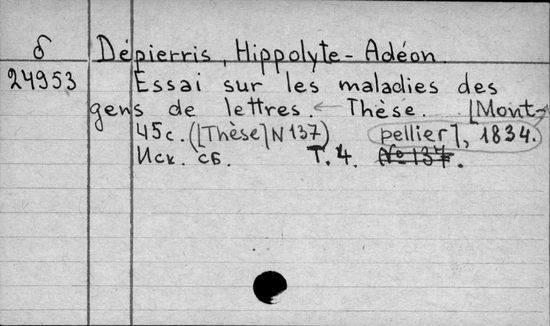 б Dépierris, Hippolyte-Adéon.
24953 Essai sur les maladies des
gens de lettres. ← Thèse. [Mont-
45с. ([Thèse] N 137) pellier], 1834.
Иск. сб. Т. 4. № 137.